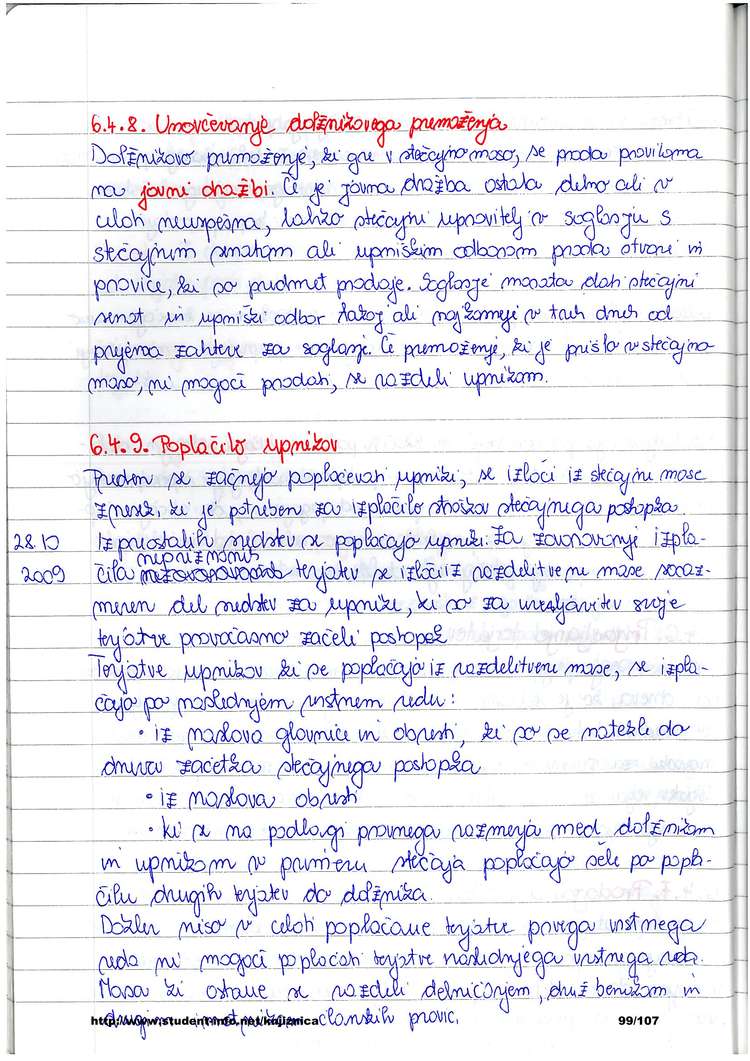 6.4.8. Unovčevanje dolžnikovega premoženja
Dolžnikovo premoženje, ki gre v stečajno maso, se proda praviloma
na javni dražbi. Če je javna dražba ostala delno ali v
celoti neuspešna, lahko stečajni upravitelj v soglasju s
stečajnim senatom ali upniškim odborom proda stvari in
pravice, ki so predmet prodaje. Soglasje morata dati stečajni
senat in upniški odbor takoj ali najkasneje v treh dneh od
prejema zahteve za soglasje. Če premoženje, ki je prišlo v stečajno
maso, ni mogoče prodati, se razdeli upnikom.
6.4.9. Poplačilo upnikov
Preden se začnejo poplačevati upniki, se izloči iz stečajne mase
znesek, ki je potreben za izplačilo stroškov stečajnega postopka.
28.10
2009
Iz preostalih sredstev se poplačajo upniki. Za zavarovanje izpla-
nepriznanih
čila terjatev se izloči iz razdelitvene mase soraz-
meren del sredstev za upnike, ki so za uveljavitev svoje
terjatve pravočasno začeli postopek
Terjatve upnikov ki se poplačajo iz razdelitvene mase, se izpla-
čajo po naslednjem vrstnem redu:
• iz naslova glavnice in obresti, ki so se natekle do
dneva začetka stečajnega postopka
• iz naslova obresti
• ki se na podlagi pravnega razmerja med dolžnikom
in upnikom v primeru stečaja poplačajo šele po popla-
čilu drugih terjatev do dolžnika.
Dokler niso v celoti poplačane terjatve prvega vrstnega
reda ni mogoče poplačati terjatve naslednjega vrstnega reda.
Masa ki ostane se razdeli delničarjem, družbenikom in
drugim imetnikom članskih pravic.
http://www.student-info.net/knjiznica
99/107